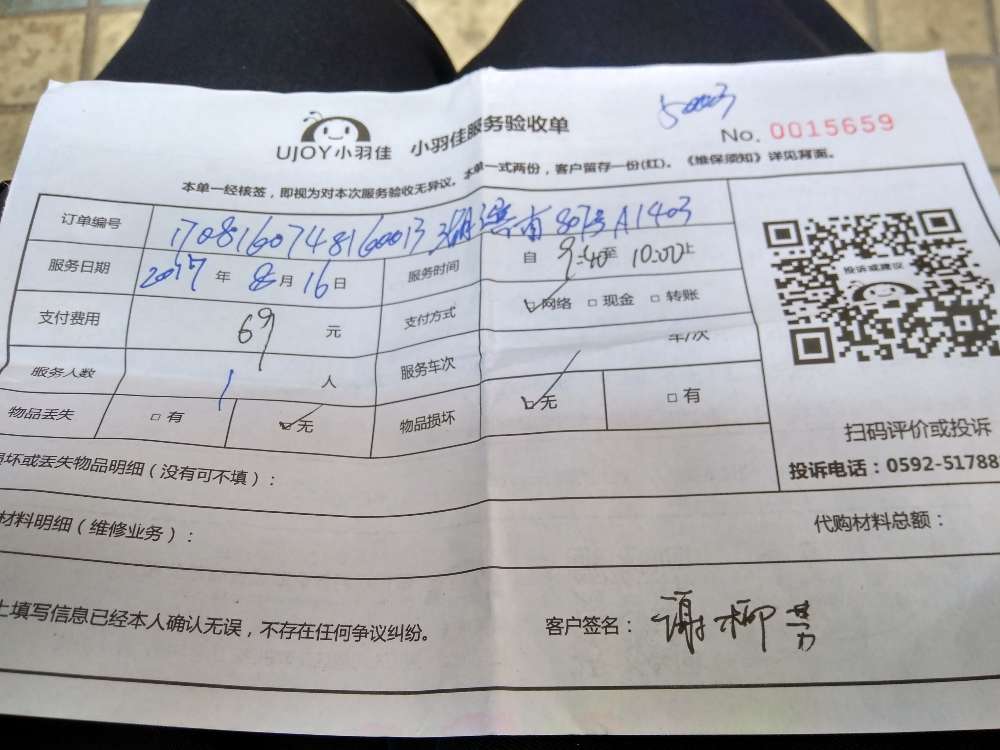 50003
UJOY小羽佳 小羽佳服务验收单 No. 0015659
本单一经核签，即视为对本次服务验收无异议。本单一式两份，客户留存一份(红)。《维保须知》详见背面。
订单编号 17081607481600013 807号A1403
服务日期 2017 年 8 月 16 日 服务时间 自 9:40 至 10:00 止
支付费用 69 元 支付方式 网络 □ 现金 □ 转账
服务人数 1 人 服务车次 车/次
物品丢失 □ 有 无 物品损坏 无 □ 有
投诉或建议
扫码评价或投诉
投诉电话：0592-51788
损坏或丢失物品明细（没有可不填）：
材料明细（维修业务）： 代购材料总额：
上填写信息已经本人确认无误，不存在任何争议纠纷。 客户签名： 谢柳